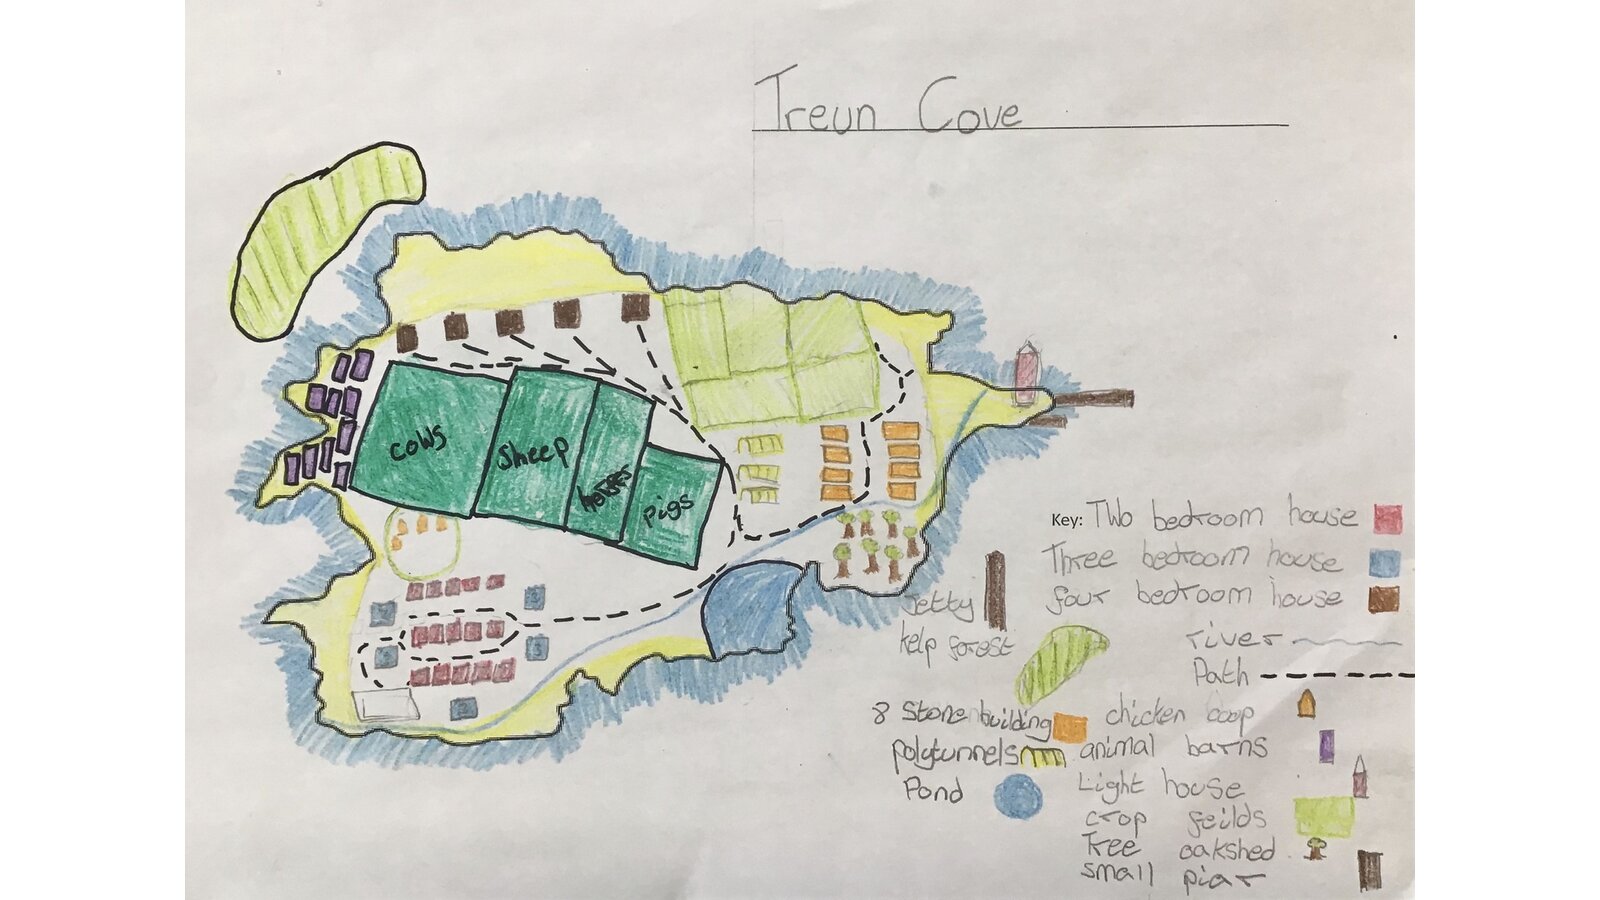 Treun Cove
cows
sheep
horses
pigs
Key: Two bedroom house
Three bedroom house
four bedroom house
Jetty
kelp forest
river
Path
8 Stone building
chicken coop
polytunnels
animal barns
Pond
Light house
crop feilds
Tree oakshed
small piar